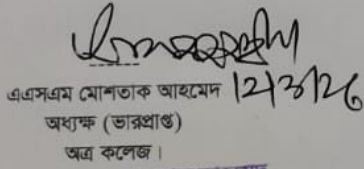 এএসএম মোশতাক আহমেদ 12/3/26
অধ্যক্ষ (ভারপ্রাপ্ত)
অত্র কলেজ।